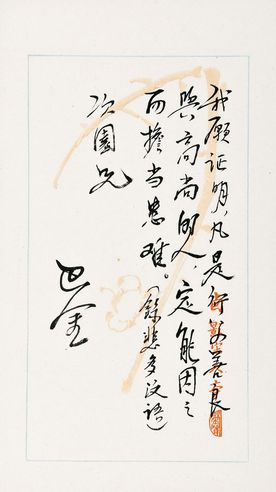 我愿证明，凡是行为善良
與高尚的人，定能因之
而擔当患难。（錄悲多汶语）
次園兄
巴金